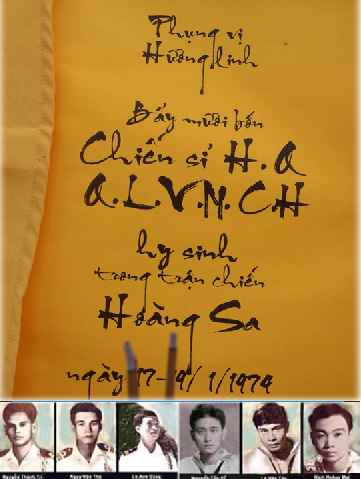 Phụng vị
Hương linh
Bẩy mươi bốn
Chiến sĩ H.Q
Q.L.V.N.C.H
hy sinh
trong trận chiến
Hoàng Sa
ngày 17-19/1/1974
Nguyễn Thành Trí
Ngụy Văn Thà
Lê Anh Dũng
Đinh Hoàng Mai